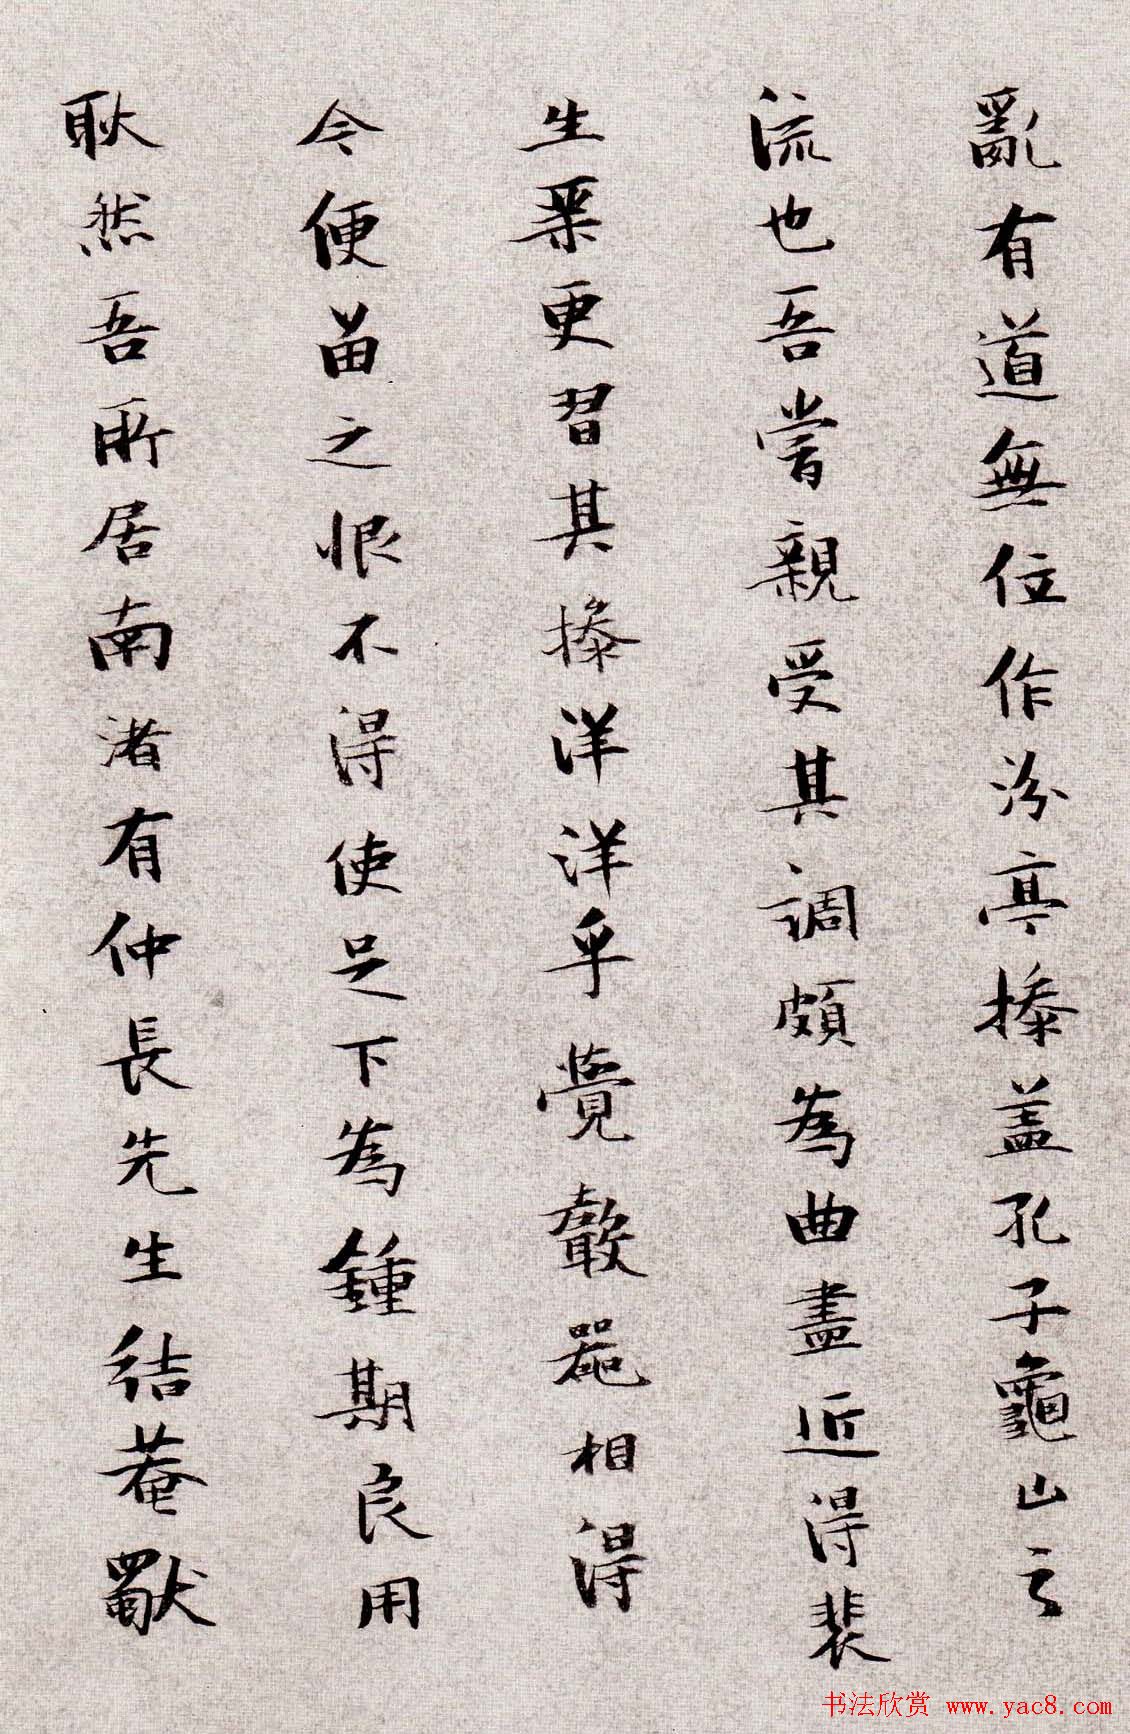 亂有道無位作汾亭操蓋孔子龜山之
流也吾嘗親受其調頗為曲盡近得裴
生琹更習其操洋洋乎覺聲器相得
今便留之恨不得使足下為鍾期良用
耿然吾所居南渚有仲長先生結菴獨
书法欣赏 www.yac8.com